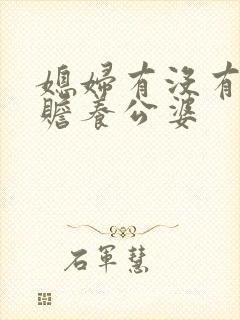 媳婦有沒有
贍養公婆
石軍慧